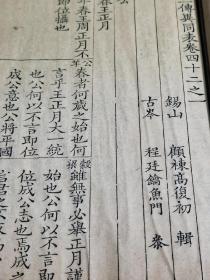 傳異同表卷四十二之
錫山 顧棟高復初 輯
古岑 程廷鑰魚門 叅
公
春王正月
年春王周正月不
即位攝也
公羊
春者何歲之始也何
言乎王正月大一統
也公何以不言即位
成公意也公將平國
穀梁
雖無事必舉正月謹
始也公何以不言即
位成公志也焉成
言君之不取